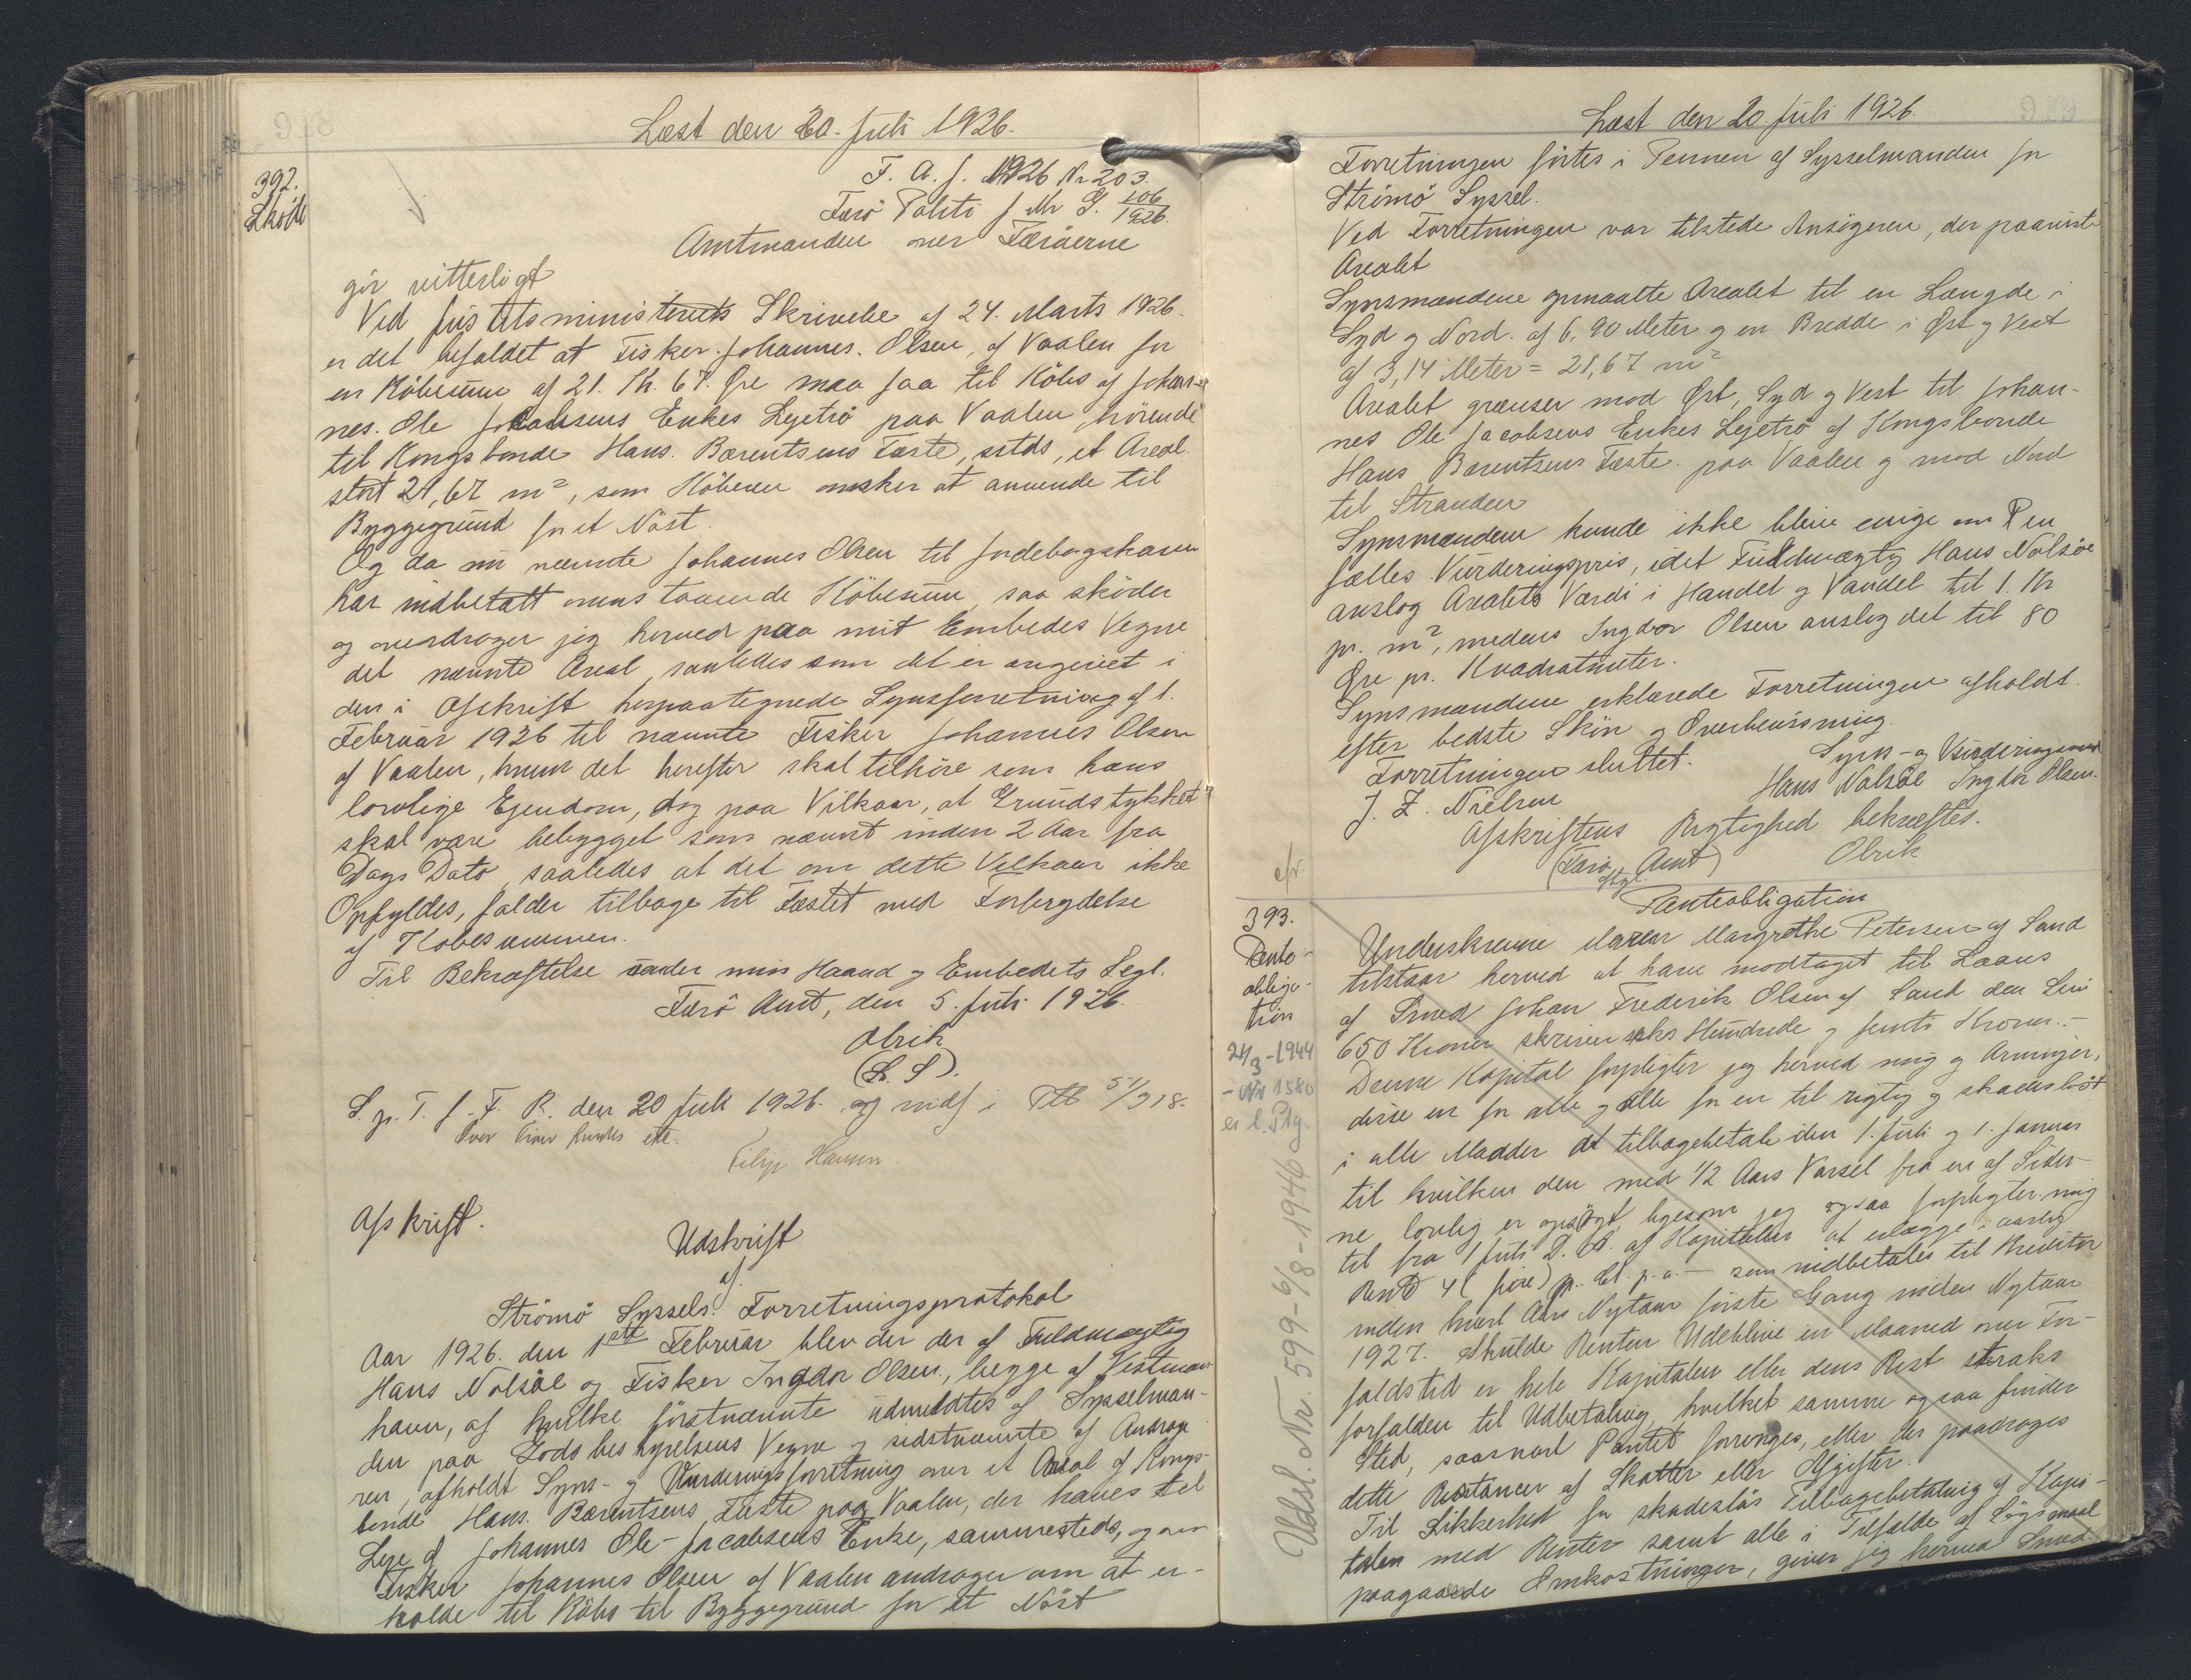 918
Læst den 20. Juli 1926.
392.
Skøde
T. A. J. 1926 Nr 203.
Færö Politi J. Nr G. 106/1926.
Amtmanden over Færöerne
gör vitterligt
Ved Justitsministeriets Skrivelse af 24. Marts 1926.
er det befaldet at Fisker Johannes. Olsen, af Vaalen for
en Köbesum af 21. Kr. 67. Øre maa faa til Köbs af Johan-
nes. Ole Jacobsens Enkes Lejetrö paa Vaalen hörende
til Kongsbonde Hans. Bærentsens Fæste, sstds, et Areal
stort 21,67 m², som Köberen önsker at anvende til
Byggegrund for et Nöst.
Og da nu nævnte Johannes Olsen til Jordebogskassen
har indbetalt ovenstaaende Köbesum, saa sköder
og overdrager jeg herved paa mit Embedes Vegne
det nævnte Areal saaledes som det er angivet i
den i Afskrift herpaategnede Synsforretning af 1.
Februar 1926 til nævnte Fisker Johannes Olsen
af Vaalen, hvem det herefter skal tilhöre som hans
lovlige Ejendom, dog paa Vilkaar, at Grundstykket
skal være bebygget som nævnt inden 2 Aar fra
Dags Dato, saaledes at det om dette Vilkaar ikke
Opfyldes, falder tilbage til Fæstet med Forbrydelse
af Köbesummen.
Til Bekræftelse under min Haand og Embedets Segl.
Færö Amt, den 5. Juli 1926.
Olrik
(L. S).
L. p. T. f. F. R. den 20 Juli 1926. og indf i Ptb 51/918.
Filip Hansen.
Afskrift.
Udskrift
af
Strömö Syssels Forretningsprotokol
Aar 1926. den 1ste Februar blev der der af Fuldmægtig
Hans Nolsöe og Fisker Ingdor Olsen, begge af Vestman-
havn, af hvilke förstnævnte udmeldtes af Sysselman-
den paa Godsbestyrelsens Vegne og sidstnævnte af Andrage
ren, afholdt Syns- og Vurderingsforretning over et Areal af Kongs-
bonde Hans. Bærentsens Fæste paa Vaalen, der haves til
Leje af Johannes Ole-Jacobsens Enke, sammesteds, og som
Fisker Johannes Olsen af Vaalen andrager om at er-
holde til Köbs til Byggegrund for et Nöst
919
Læst den 20. Juli 1926.
Forretningen förtes i Pennen af Sysselmanden for
Strömö Syssel.
Ved Forretningen var tilstede Ansögeren, der paaviste
Arealet
Synsmændene opmaalte Arealet til en Længde i
Syd og Nord. af 6,90 Meter og en Bredde i Øst og Vest
af 3,14 Meter = 21,67 m²
Arealet grænser mod Øst, Syd og Vest til Johan-
nes Ole Jacobsens Enkes Lejetrö af Kongsbonde
Hans Bærentsens Fæste. paa Vaalen og mod Nord
til Stranden
Synsmændene kunde ikke blive enige om en
fælles Vurderingspris, idet Fuldmægtig Hans Nolsöe
anslog Arealets Værdi i Handel og Vandel til 1. Kr
pr. m², medens Ingdor Olsen anslog det til 80
Øre pr. Kvadratmeter.
Synsmændene erklærede Forretningen afholdt
efter bedste Skön og Overbevisning.
Forretningen sluttet.
Syns- og Vurderingsmænd
J. Z. Nielsen
Hans Nolsöe Ingdor Olsen.
Afskriftens Rigtighed bekræftes.
(Færö Amt) Olrik
Pantobligation
393.
Panto-
obliga-
tion
24/3-1944
- Nr 1580
er l. Ptg.
Udsl. Nr. 599-6/8-1946
Underskrevne Maren Margrethe Petersen af Sand
tilstaar herved at have modtaget til Laans
af Smed Johan Frederik Olsen af Sand den Sum
650 Kroner skriver seks Hundrede og femti Kroner.-
Denne Kapital forpligter jeg herved mig og Arvinger,
disse en for alle og alle for en til rigtig og skadeslöst
i alle Maader at tilbagebetale den 1. Juli og 1. Januar
til hvilken den med 1/2 Aars Varsel fra en af Sider-
ne lovlig er opsagt, ligesom jeg ogsaa forpligter mig
til fra 1 Juli D. A. af Kapitalen at erlægge i aarlig
Rente 4 (fire) p. Ct. p. a. - som indbetales til Kreditor
inden hvert Aars Nytaar förste Gang inden Nytaar
1927. Skulde Renten Udeblive en Maaned over For-
faldstid er hele Kapitalen eller dens Rest straks
forfalden til Udbetaling, hvilket samme ogsaa finder
Sted, saasnart Pantet forringes, eller der paadrages
dette Restancer af Skatter eller Afgifter.
Til Sikkerhed for skadeslös Tilbagebetaling af Kapi-
talen med Renter samt alle i Tilfælde af Sögsmaal
paagaaende Omkostninger, giver jeg herved Smed.